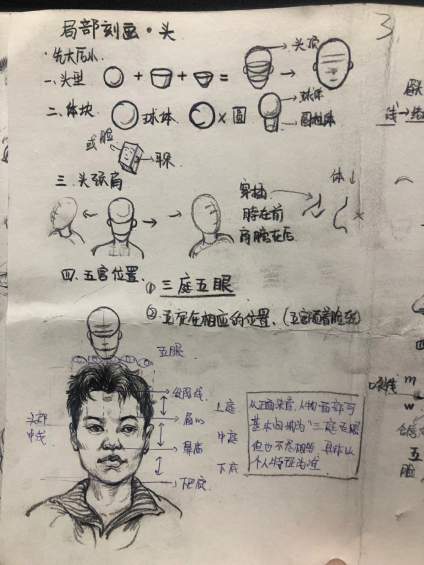 局部刻画·头
·先大后小.
一、头型 + + = → 头顶
二、体块. 球体 × 圆 球体
圆柱体
或脸
耳朵
三、头颈肩
穿插
脖在前
肩膀在后
体↓
×
四. 五官位置.
① 三庭五眼
② 五官在相应的位置. (五官随着脸转)
五眼
头部
中线
发际线
眉心
鼻底
下巴底
上庭
中庭
下庭
从正面来看,人物面部可
基本归纳为"三庭五眼
但也不尽相同,具体以
个人特征为准
3
m
w
五